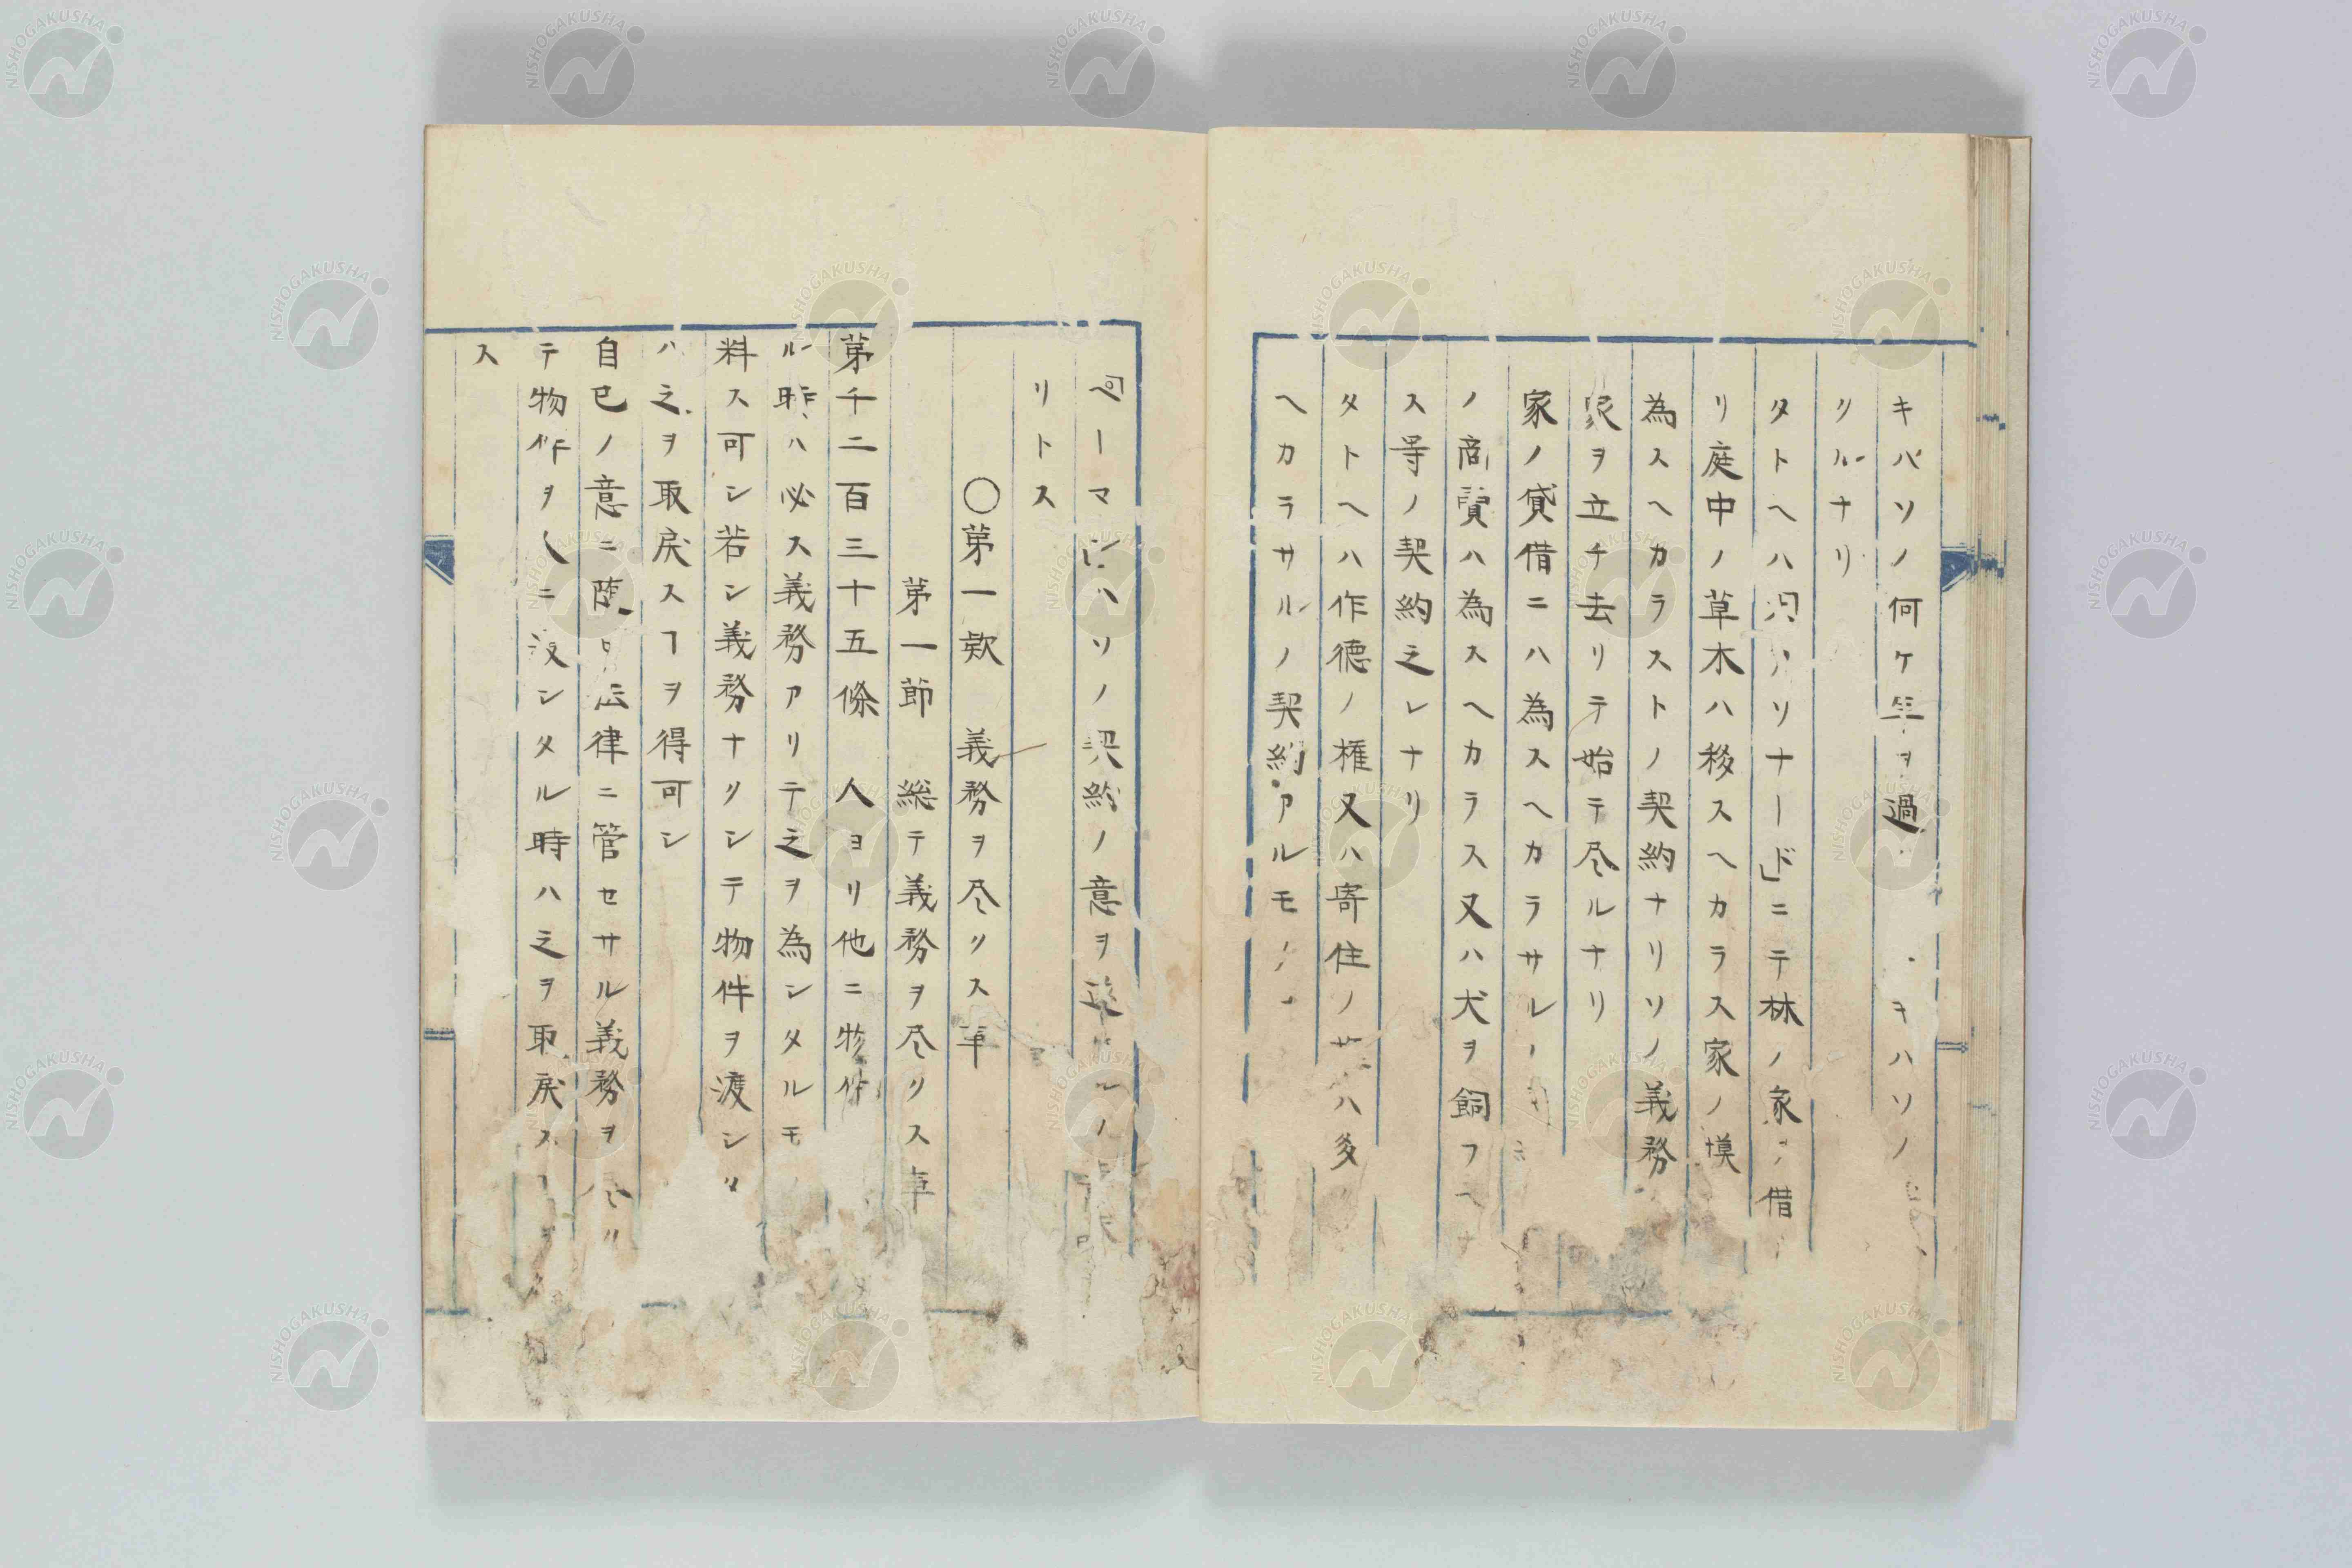 キハソノ何ケ年ヲ過 キハソノ
クルナリ
タトヘハ ソナード」ニテ林ノ家ノ借
リ庭中ノ草木ハ移スヘカラス家ノ模
為スヘカラストノ契約ナリソノ義務
家ヲ立チ去リテ始テ尽ルナリ
家ノ貸借ニハ為スヘカラサレ
ノ商買ハ為スヘカラス又ハ犬ヲ飼フヘ
ス等ノ契約之レナリ
タトヘハ作徳ノ権又ハ寄住ノ ハ多
ヘカラサルノ契約アルモノ
「ペーマン」ハソノ契約ノ意ヲ
リトス
〇第一款 義務ヲ尽クス事
第一節 総テ義務ヲ尽クス事
第千二百三十五條 人ヨリ他ニ物件
ル時ハ必ス義務アリテ之ヲ為シタルモ
料ス可シ若シ義務ナクシテ物件ヲ渡シタ
ハ之ヲ取戻スヿヲ得可シ
自己ノ意ニ随 法律ニ管セサル義務ヲ尽
テ物件ヲ人ニ渡シタル時ハ之ヲ取戻スヿ
ス
NISHOGAKUSHA